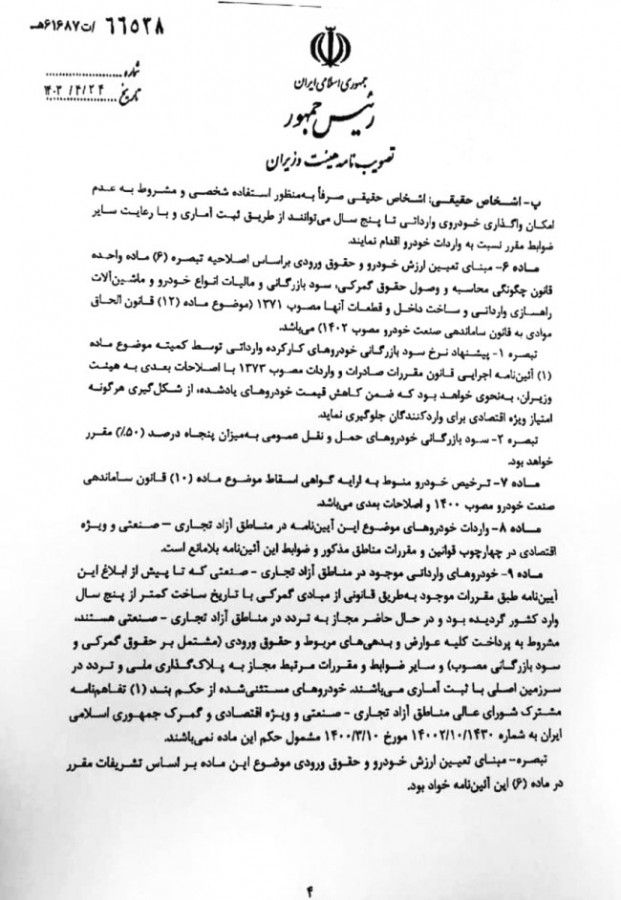 ۶۶۵۲۸ /ت۶۱۶۸۷هـ
شماره
تاریخ ۱۴۰۳/۴/۲۴
جمهوری اسلامی ایران
رئیس جمهور
تصویب نامه هیئت وزیران
پ- اشخاص حقیقی: اشخاص حقیقی صرفاً به‌منظور استفاده شخصی و مشروط به عدم
امکان واگذاری خودروی وارداتی تا پنج سال می‌توانند از طریق ثبت آماری و با رعایت سایر
ضوابط مقرر نسبت به واردات خودرو اقدام نمایند.
ماده ۶- مبنای تعیین ارزش خودرو و حقوق ورودی براساس اصلاحیه تبصره (۶) ماده واحده
قانون چگونگی محاسبه و وصول حقوق گمرکی، سود بازرگانی و مالیات انواع خودرو و ماشین‌آلات
راهسازی وارداتی و ساخت داخل و قطعات آنها مصوب ۱۳۷۱ (موضوع ماده (۱۲) قانون الحاق
موادی به قانون ساماندهی صنعت خودرو مصوب ۱۴۰۲) می‌باشد.
تبصره ۱- پیشنهاد نرخ سود بازرگانی خودروهای کارکرده وارداتی توسط کمیته موضوع ماده
(۱) آئین‌نامه اجرایی قانون مقررات صادرات و واردات مصوب ۱۳۷۳ با اصلاحات بعدی به هیئت
وزیران، به‌نحوی خواهد بود که ضمن کاهش قیمت خودروهای یادشده، از شکل‌گیری هرگونه
امتیاز ویژه اقتصادی برای واردکنندگان جلوگیری نماید.
تبصره ۲- سود بازرگانی خودروهای حمل و نقل عمومی به‌میزان پنجاه درصد (۵۰٪) مقرر
خواهد بود.
ماده ۷- ترخیص خودرو منوط به ارایه گواهی اسقاط موضوع ماده (۱۰) قانون ساماندهی
صنعت خودرو مصوب ۱۴۰۰ و اصلاحات بعدی می‌باشد.
ماده ۸- واردات خودروهای موضوع این آیین‌نامه در مناطق آزاد تجاری – صنعتی و ویژه
اقتصادی در چهارچوب قوانین و مقررات مناطق مذکور و ضوابط این آئین‌نامه بلامانع است.
ماده ۹- خودروهای وارداتی موجود در مناطق آزاد تجاری - صنعتی که تا پیش از ابلاغ این
آیین‌نامه طبق مقررات موجود به‌طریق قانونی از مبادی گمرکی با تاریخ ساخت کمتر از پنج سال
وارد کشور گردیده بود و در حال حاضر مجاز به تردد در مناطق آزاد تجاری - صنعتی هستند،
مشروط به پرداخت کلیه عوارض و بدهی‌های مربوط و حقوق ورودی (مشتمل بر حقوق گمرکی و
سود بازرگانی مصوب) و سایر ضوابط و مقررات مرتبط مجاز به پلاک‌گذاری ملی و تردد در
سرزمین اصلی با ثبت آماری می‌باشند. خودروهای مستثنی‌شده از حکم بند (۱) تفاهم‌نامه
مشترک شورای عالی مناطق آزاد تجاری - صنعتی و ویژه اقتصادی و گمرک جمهوری اسلامی
ایران به شماره ۱۴۰۰۲/۱۰/۱۴۳۰ مورخ ۱۴۰۰/۳/۱۰ مشمول حکم این ماده نمی‌باشند.
تبصره- مبنای تعیین ارزش خودرو و حقوق ورودی موضوع این ماده بر اساس تشریفات مقرر
در ماده (۶) این آئین‌نامه خواد بود.
۴